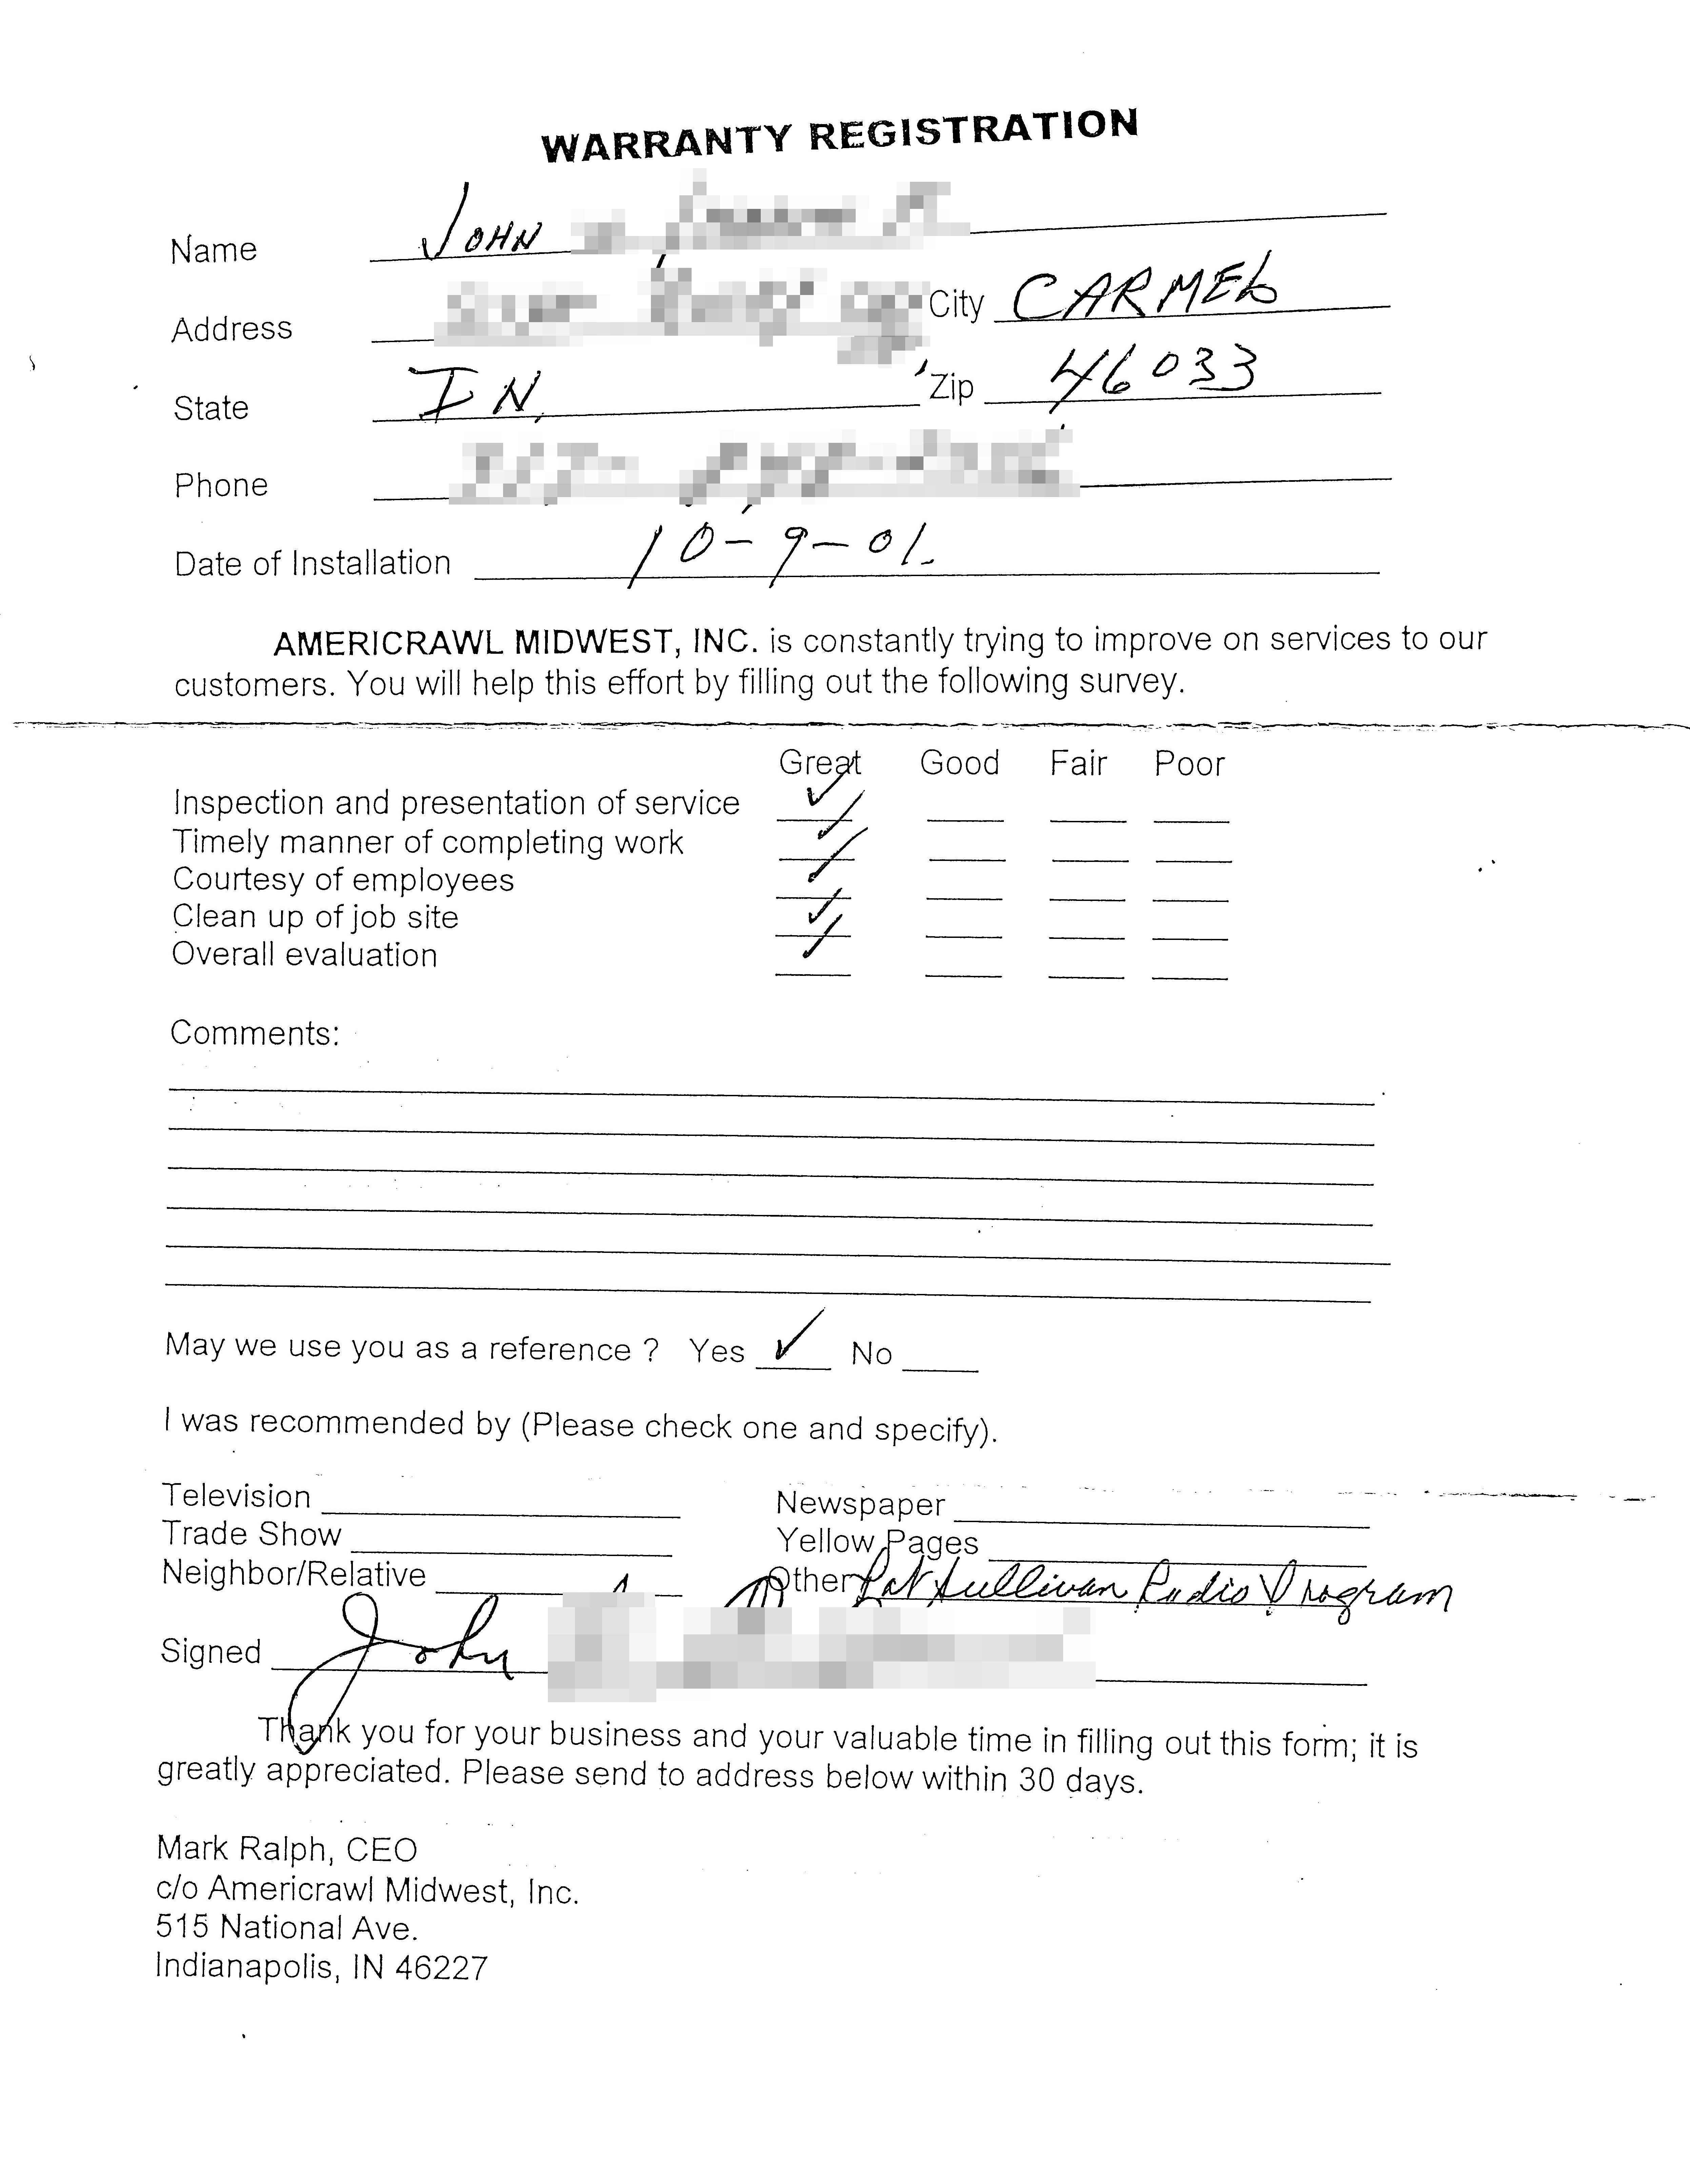 WARRANTY REGISTRATION
Name JOHN
Address City CARMEL
State IN. Zip 46033
Phone
Date of Installation 10-9-01.
AMERICRAWL MIDWEST, INC. is constantly trying to improve on services to our
customers. You will help this effort by filling out the following survey.
Great Good Fair Poor
Inspection and presentation of service ✓
Timely manner of completing work ✓
Courtesy of employees ✓
Clean up of job site ✓
Overall evaluation ✓
Comments:
May we use you as a reference ? Yes ✓ No
I was recommended by (Please check one and specify).
Television Newspaper
Trade Show Yellow Pages
Neighbor/Relative Other Pat Sullivan Radio Program
Signed John
Thank you for your business and your valuable time in filling out this form; it is
greatly appreciated. Please send to address below within 30 days.
Mark Ralph, CEO
c/o Americrawl Midwest, Inc.
515 National Ave.
Indianapolis, IN 46227